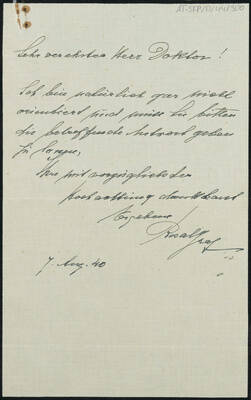 Sehr verehrter Herr Doktor!
Ich bin natürlich gar nicht
orientiert und muss Sie bitten
die betreffende Antwort geben
zu lassen,
Ihre mit vorzüglichster
Hochachtung dankbar
Ergebene
Rosa Graf
7. Aug. 40